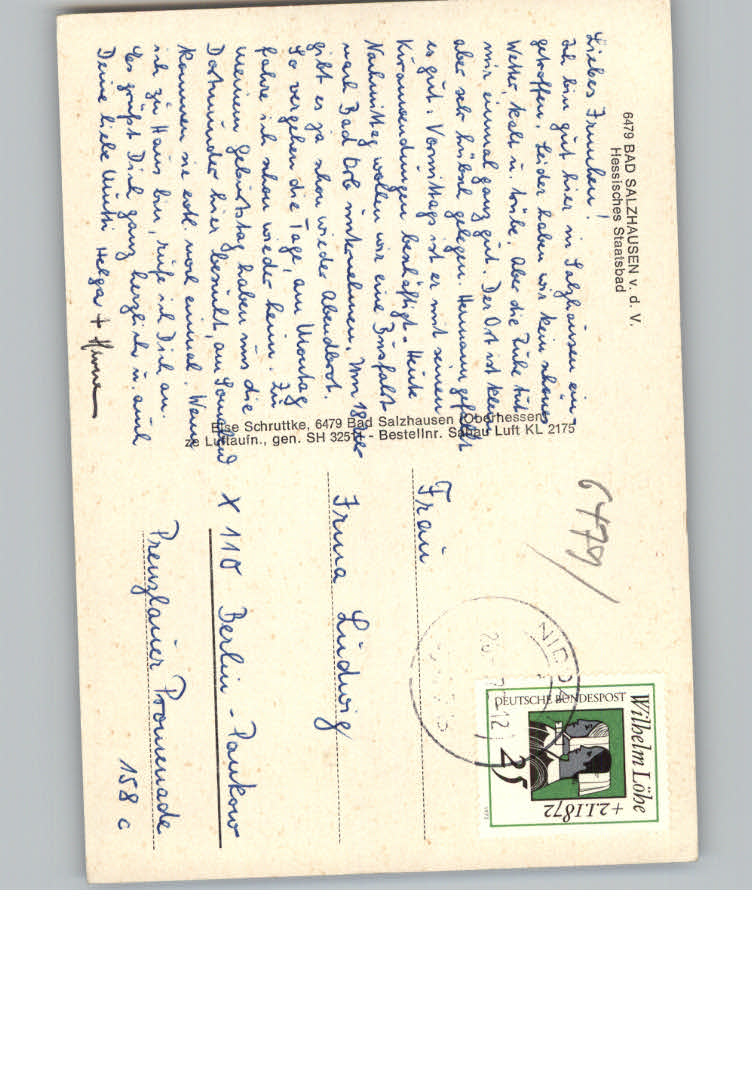 6479 BAD SALZHAUSEN v. d. V.
Hessisches Staatsbad
Liebes Irmchen!
Ich bin gut hier in Salzhausen ein-
getroffen. Leider haben wir kein schönes
Wetter, kalt u. trübe. Aber die Ruhe tut
mir einmal ganz gut. Der Ort ist klein
aber sehr hübsch gelegen. Hermann gefällt
es gut. Vormittags ist er mit seinen
Kuranwendungen beschäftigt. Heute
Nachmittag wollen wir eine Busfahrt
nach Bad Orb unternehmen. Um 18 Uhr
gibt es ja schon wieder Abendbrot.
So vergehen die Tage, am Montag
fahre ich schon wieder heim. Zu
meinem Geburtstag haben uns die
Dortmunder hier besucht, am Sonnabend
kommen sie evtl. noch einmal. Wenn
ich zu Haus bin, rufe ich Dich an.
Es grüßt Dich ganz herzlich u. auch
Deine liebe Mutti Helga +
Else Schruttke, 6479 Bad Salzhausen (Oberhessen)
Luftaufn., gen. SH 325 - Bestellnr. Schau Luft KL 2175
6479/
Frau
Irma Ludwig
X 110 Berlin - Pankow
Prenzlauer Promenade
158 c
NIDDA
DEUTSCHE BUNDESPOST
25
Wilhelm Löhe
+2.1.1872
1972